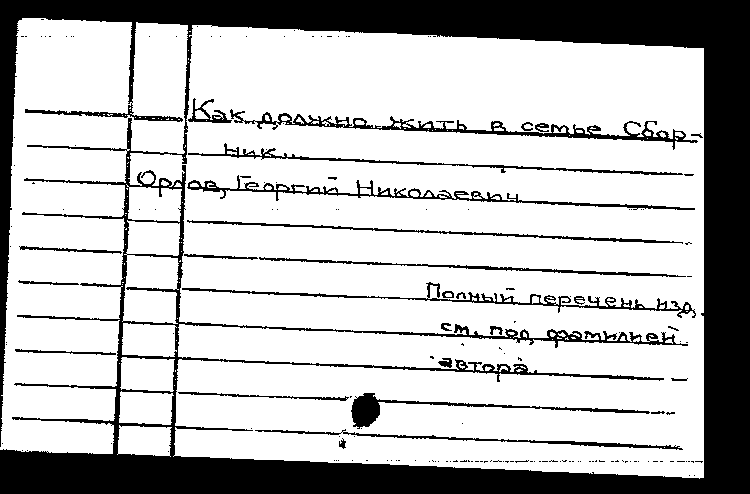 Как должно жить в семье Сбор-
ник...
Орлов, Георгий Николаевич
Полный перечень изд.
см. под фамилией
автора.